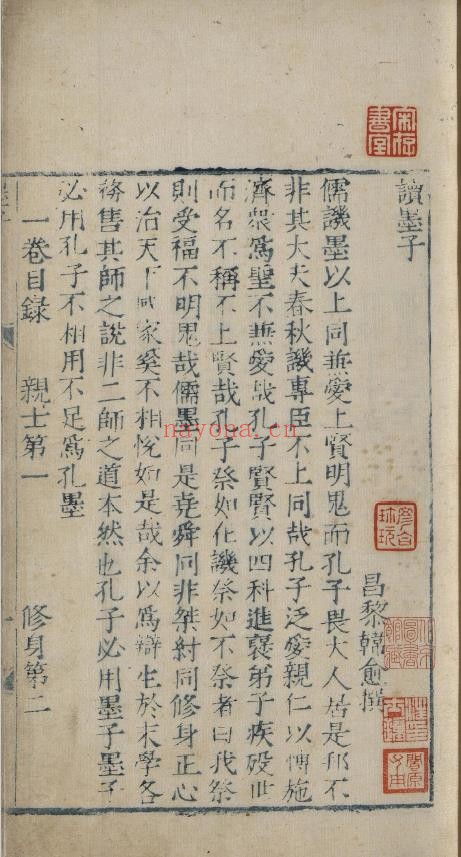 讀墨子
昌黎韓愈撰
儒譏墨以上同兼愛上賢明鬼而孔子畏大人居是邦不
非其大夫春秋譏專臣不上同哉孔子泛愛親仁以博施
濟衆爲聖不兼愛哉孔子賢賢以四科進襃弟子疾歿世
而名不稱不上賢哉孔子祭如在譏祭如不祭者曰我祭
則受福不明鬼哉儒墨同是堯舜同非桀紂同修身正心
以治天下國家奚不相悅如是哉余以爲辯生於末學各
務售其師之說非二師之道本然也孔子必用墨子墨子
必用孔子不相用不足爲孔墨
一卷目錄 親士第一 修身第二
宋存書室
彥合珍玩
北京圖書館藏
nayona.cn